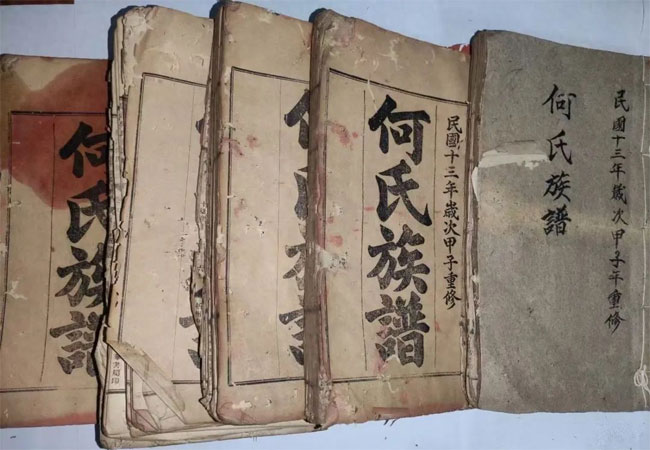 民國十三年歲次甲子年重修
何氏族譜
民國十三年歲次甲子重修
何氏族譜
何氏族譜
何氏族譜